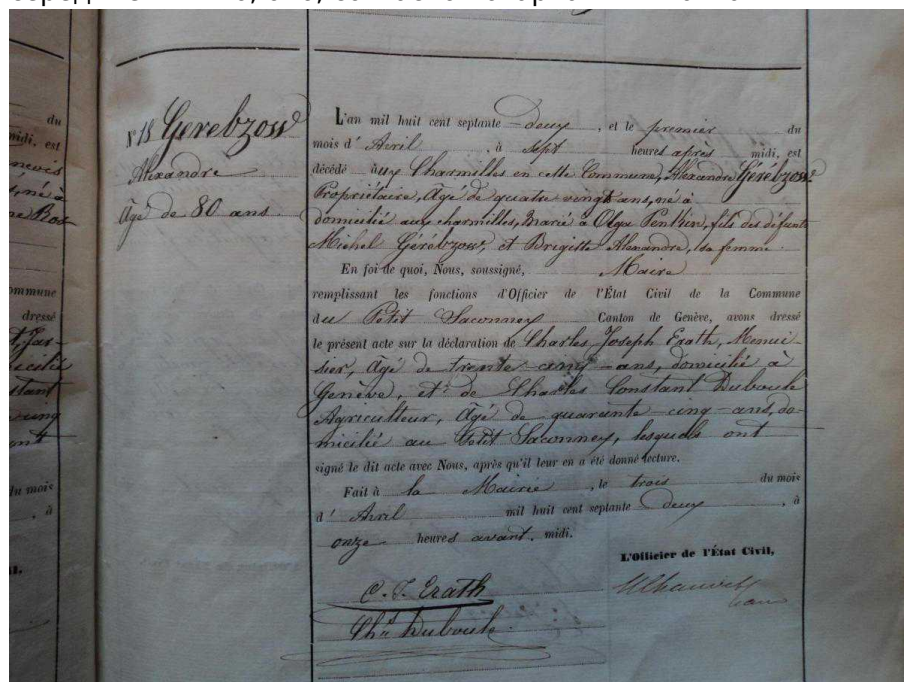 N°18 Gerebzow
Alexandre
Âgé de 80 ans.
L'an mil huit cent septante Deux, et le premier du
mois d'Avril, à sept heures après midi, est
décédé aux Charmilles en cette Commune, Alexandre Gérébzow
Propriétaire, Âgé de quatre vingts ans, né à
domicilié aux charmilles, Marié à Olga fils des défunts
Michel Gérébzow, et Brigitte Alexandre, sa femme.
En foi de quoi, Nous, soussigné, Maire
remplissant les fonctions d'Officier de l'État Civil de la Commune
du Petit Saconnex Canton de Genève, avons dressé
le présent acte sur la déclaration de Charles Joseph Erath, Menui-
sier, Âgé de trente-cinq-ans, domicilié à
Genève, et de Charles Constant Duboule
Agriculteur, Âgé de quarante-cinq-ans, do-
micilié au Petit Saconnex, lesquels ont
signé le dit acte avec Nous, après qu'il leur en a été donné lecture.
Fait à la Mairie, le trois du mois
d'Avril mil huit cent septante Deux, à
onze heures avant, midi.
L'Officier de l'État Civil,
C. J. Erath
Chs Duboule
du
midi, est
né à
commune
dressé
cinq
du mois
, à